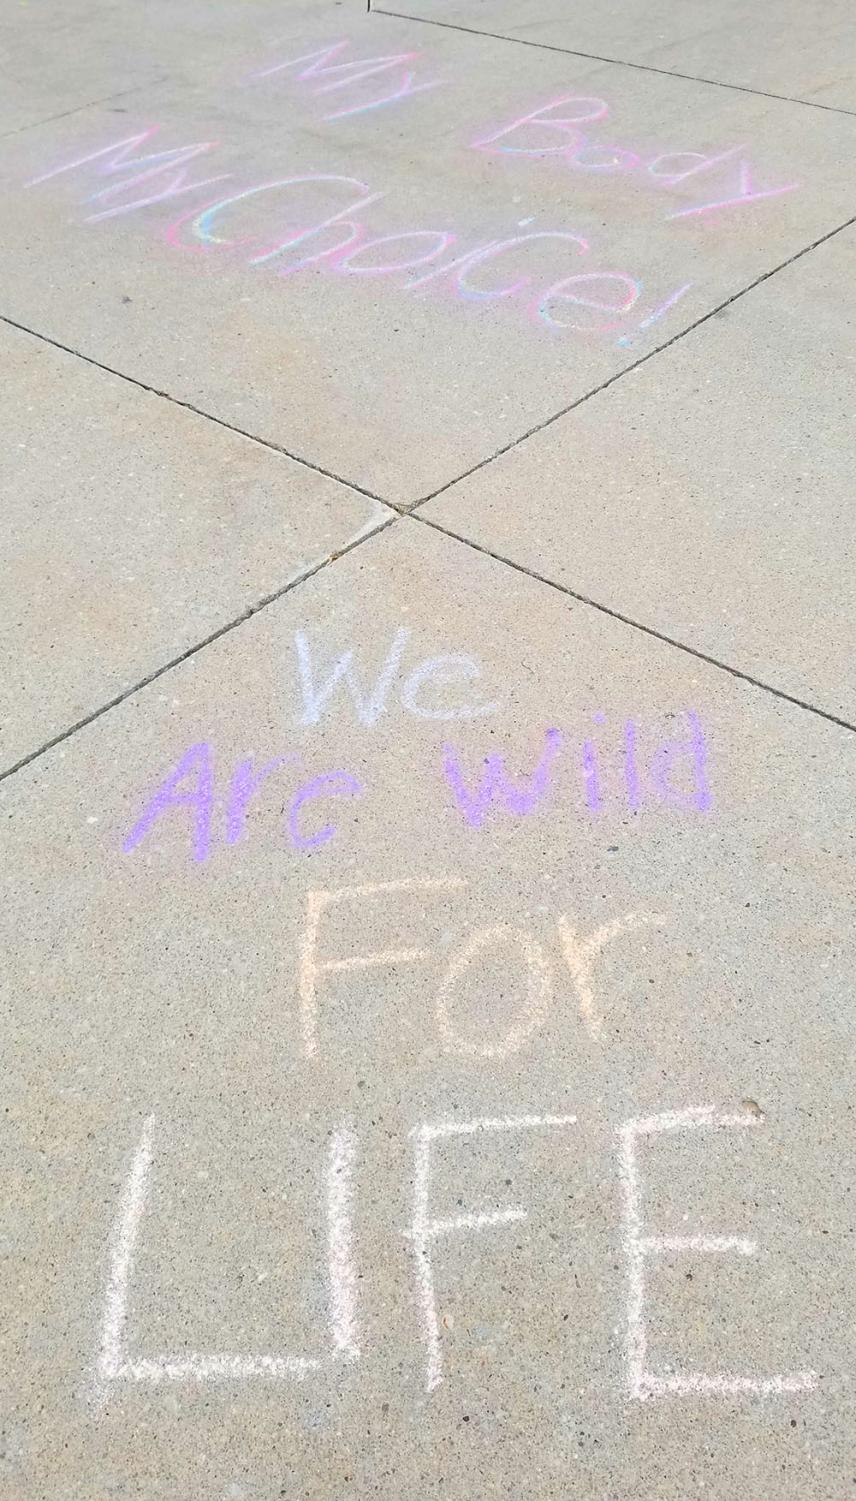 My Body
My Choice!
We
Are wild
For
LIFE